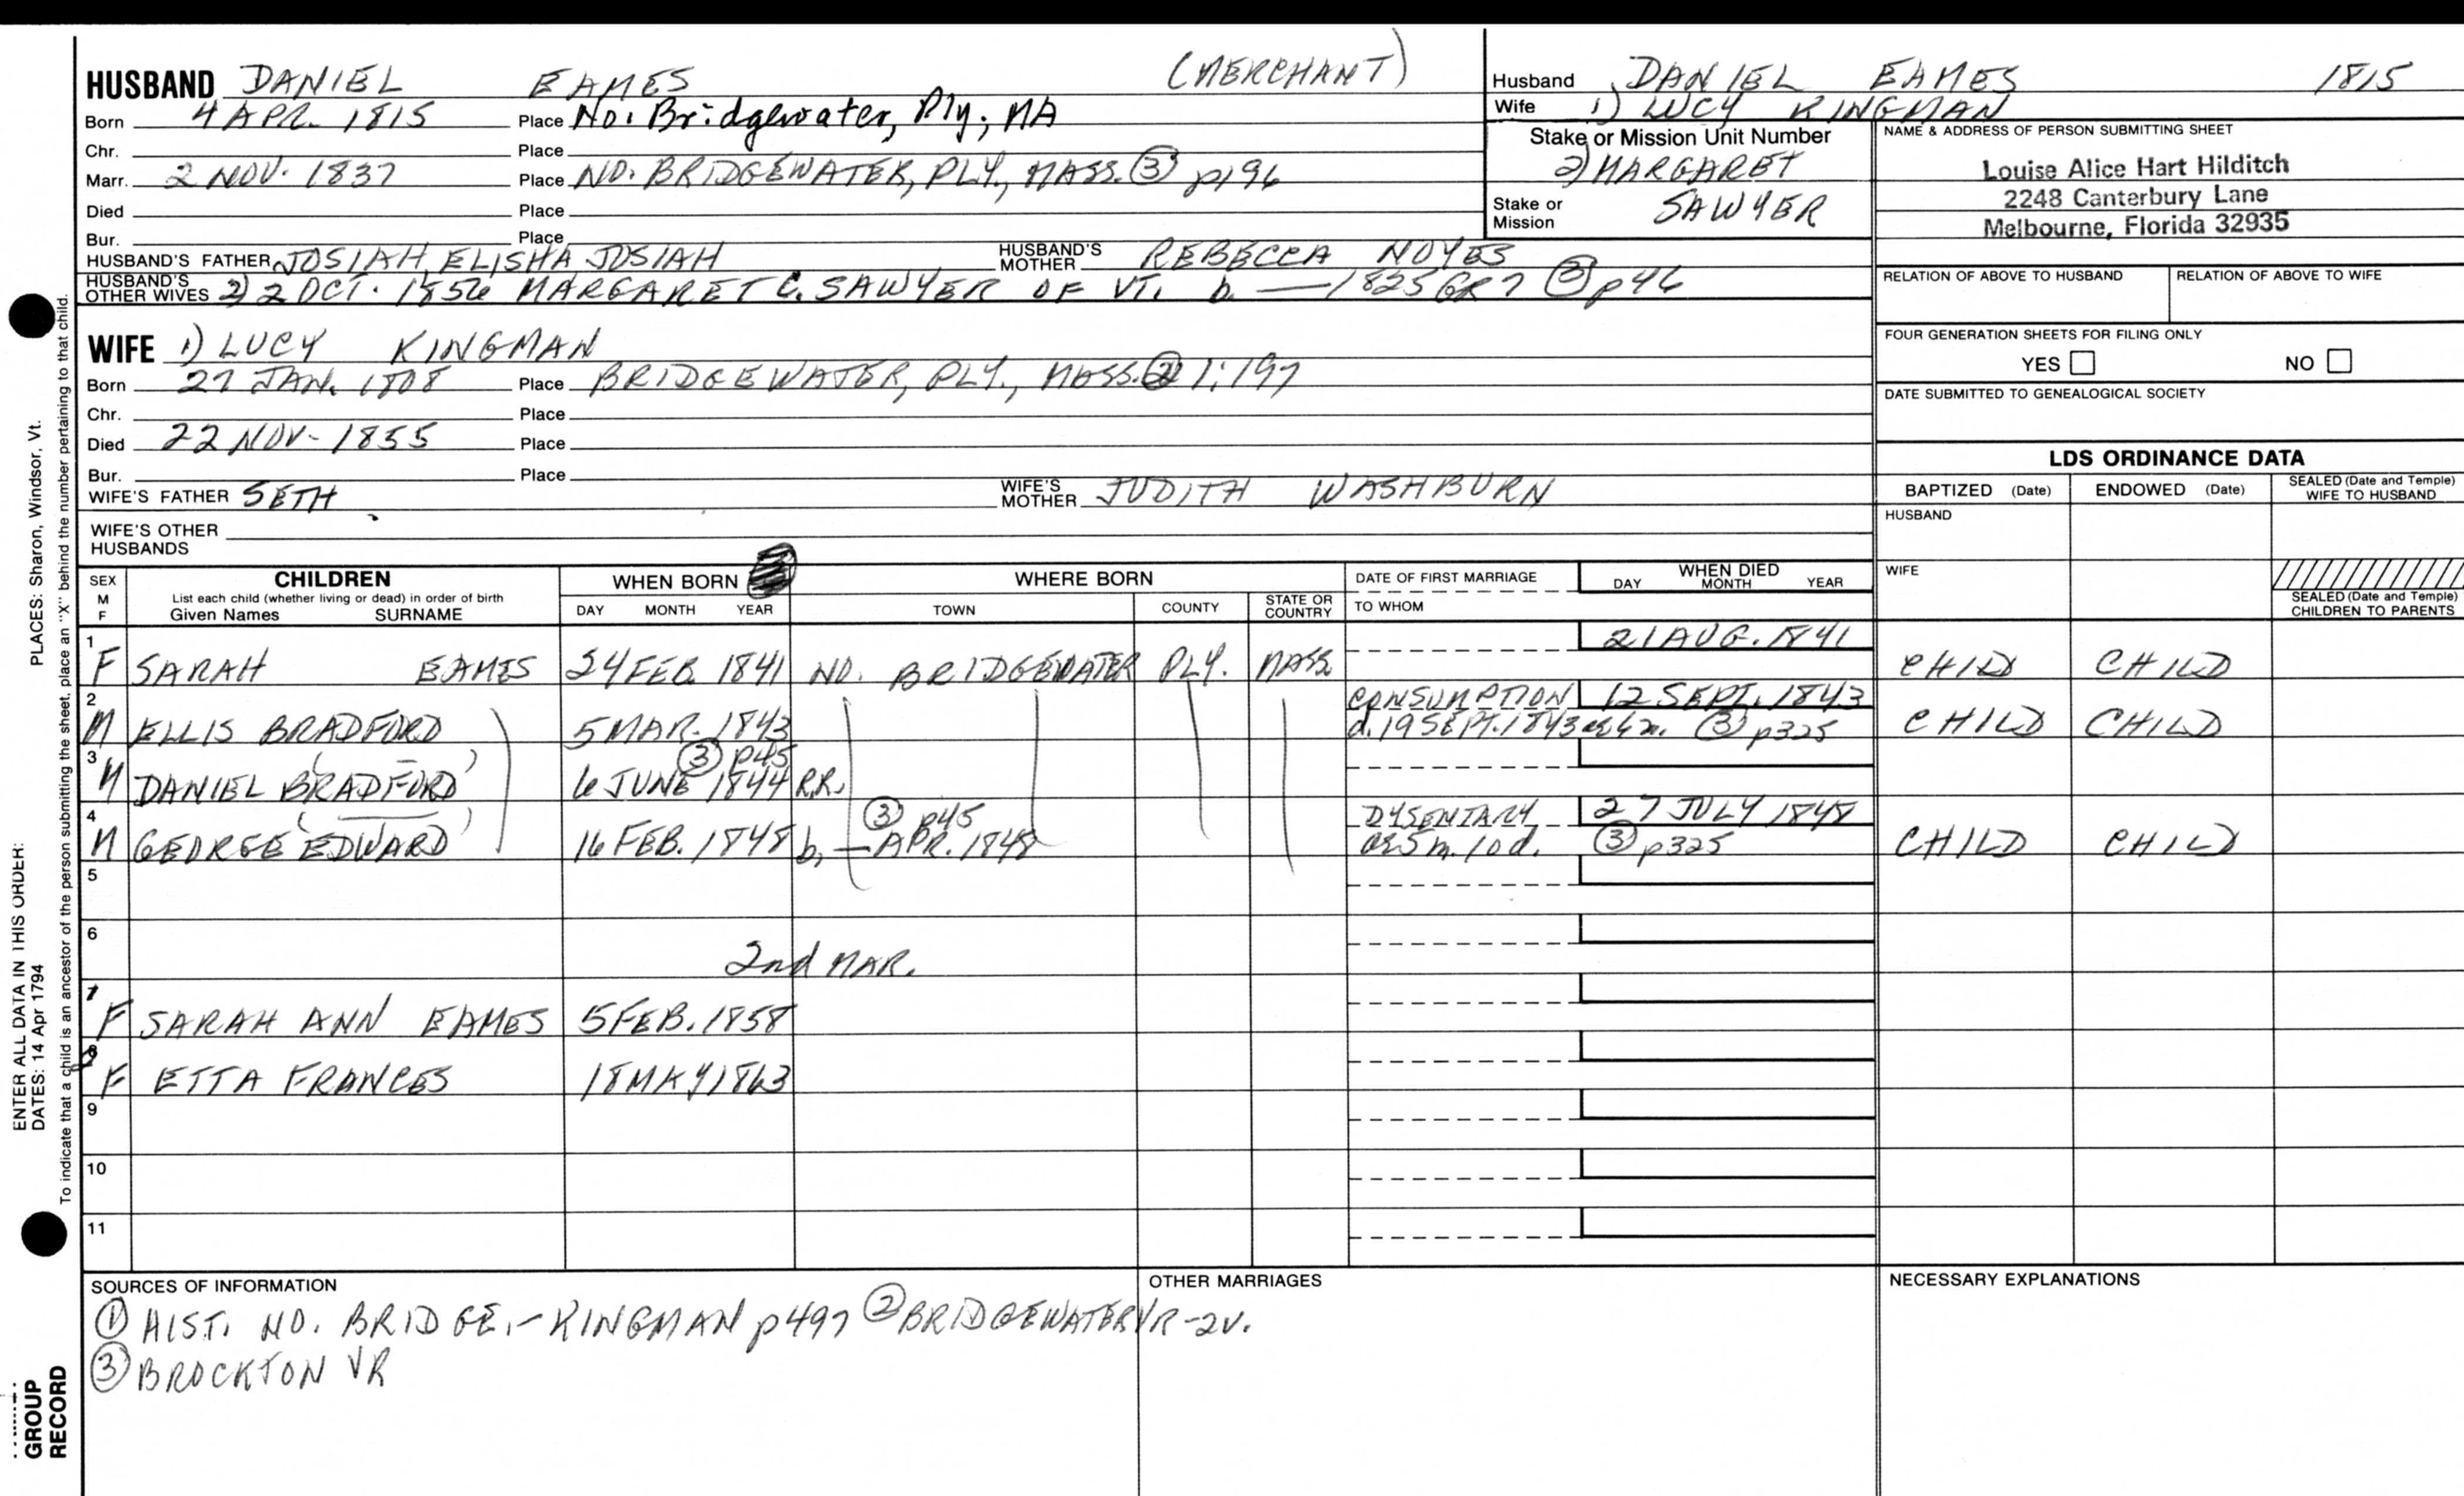 HUSBAND DANIEL EAMES (MERCHANT)
Born 4 APR. 1815 Place No. Bridgewater, Ply; MA
Chr. Place
Marr. 2 NOV. 1837 Place NO. BRIDGEWATER, PLY., MASS. ③ p196
Died Place
Bur. Place
HUSBAND'S FATHER JOSIAH, ELISHA JOSIAH HUSBAND'S MOTHER REBECCA NOYES
HUSBAND'S OTHER WIVES 2) 2 OCT. 1856 MARGARET C. SAWYER OF VT. b. — 1825 GR7 ③ p46
Husband DANIEL EAMES 1815
Wife 1) LUCY KINGMAN
Stake or Mission Unit Number
2) MARGARET
Stake or Mission SAWYER
NAME & ADDRESS OF PERSON SUBMITTING SHEET
Louise Alice Hart Hilditch
2248 Canterbury Lane
Melbourne, Florida 32935
RELATION OF ABOVE TO HUSBAND RELATION OF ABOVE TO WIFE
FOUR GENERATION SHEETS FOR FILING ONLY
YES NO
DATE SUBMITTED TO GENEALOGICAL SOCIETY
WIFE 1) LUCY KINGMAN
Born 27 JAN. 1808 Place BRIDGEWATER, PLY., MASS. ② 1:197
Chr. Place
Died 22 NOV. 1855 Place
Bur. Place
WIFE'S FATHER SETH WIFE'S MOTHER JUDITH WASHBURN
WIFE'S OTHER HUSBANDS
LDS ORDINANCE DATA
BAPTIZED (Date) ENDOWED (Date) SEALED (Date and Temple) WIFE TO HUSBAND
HUSBAND
WIFE
SEALED (Date and Temple) CHILDREN TO PARENTS
SEX M F CHILDREN WHEN BORN WHERE BORN DATE OF FIRST MARRIAGE WHEN DIED
List each child (whether living or dead) in order of birth
Given Names SURNAME DAY MONTH YEAR TOWN COUNTY STATE OR COUNTRY TO WHOM DAY MONTH YEAR
1 21 AUG. 1841
F SARAH EAMES 24 FEB. 1841 NO. BRIDGEWATER PLY. MASS CHILD CHILD
2 CONSUMPTION 12 SEPT. 1843
M ELLIS BRADFORD 5 MAR. 1843 d. 19 SEPT. 1843 ae 6m. ③ p325 CHILD CHILD
3 ③ p45
M DANIEL BRADFORD 6 JUNE 1844 R.R.
4 ③ p45 DYSENTARY 27 JULY 1848
M GEORGE EDWARD 16 FEB. 1848 b. — APR. 1848 ae 5m. 10d. ③ p325 CHILD CHILD
5
6
2nd MAR.
7
F SARAH ANN EAMES 5 FEB. 1858
8
F ETTA FRANCES 18 MAY 1863
9
10
11
SOURCES OF INFORMATION OTHER MARRIAGES NECESSARY EXPLANATIONS
① HIST. NO. BRIDGE.-KINGMAN p497 ② BRIDGEWATER VR-2v.
③ BROCKTON VR
ENTER ALL DATA IN THIS ORDER:
DATES: 14 Apr 1794
PLACES: Sharon, Windsor, Vt.
To indicate that a child is an ancestor of the person submitting the sheet, place an "X" behind the number pertaining to that child.
GROUP
RECORD